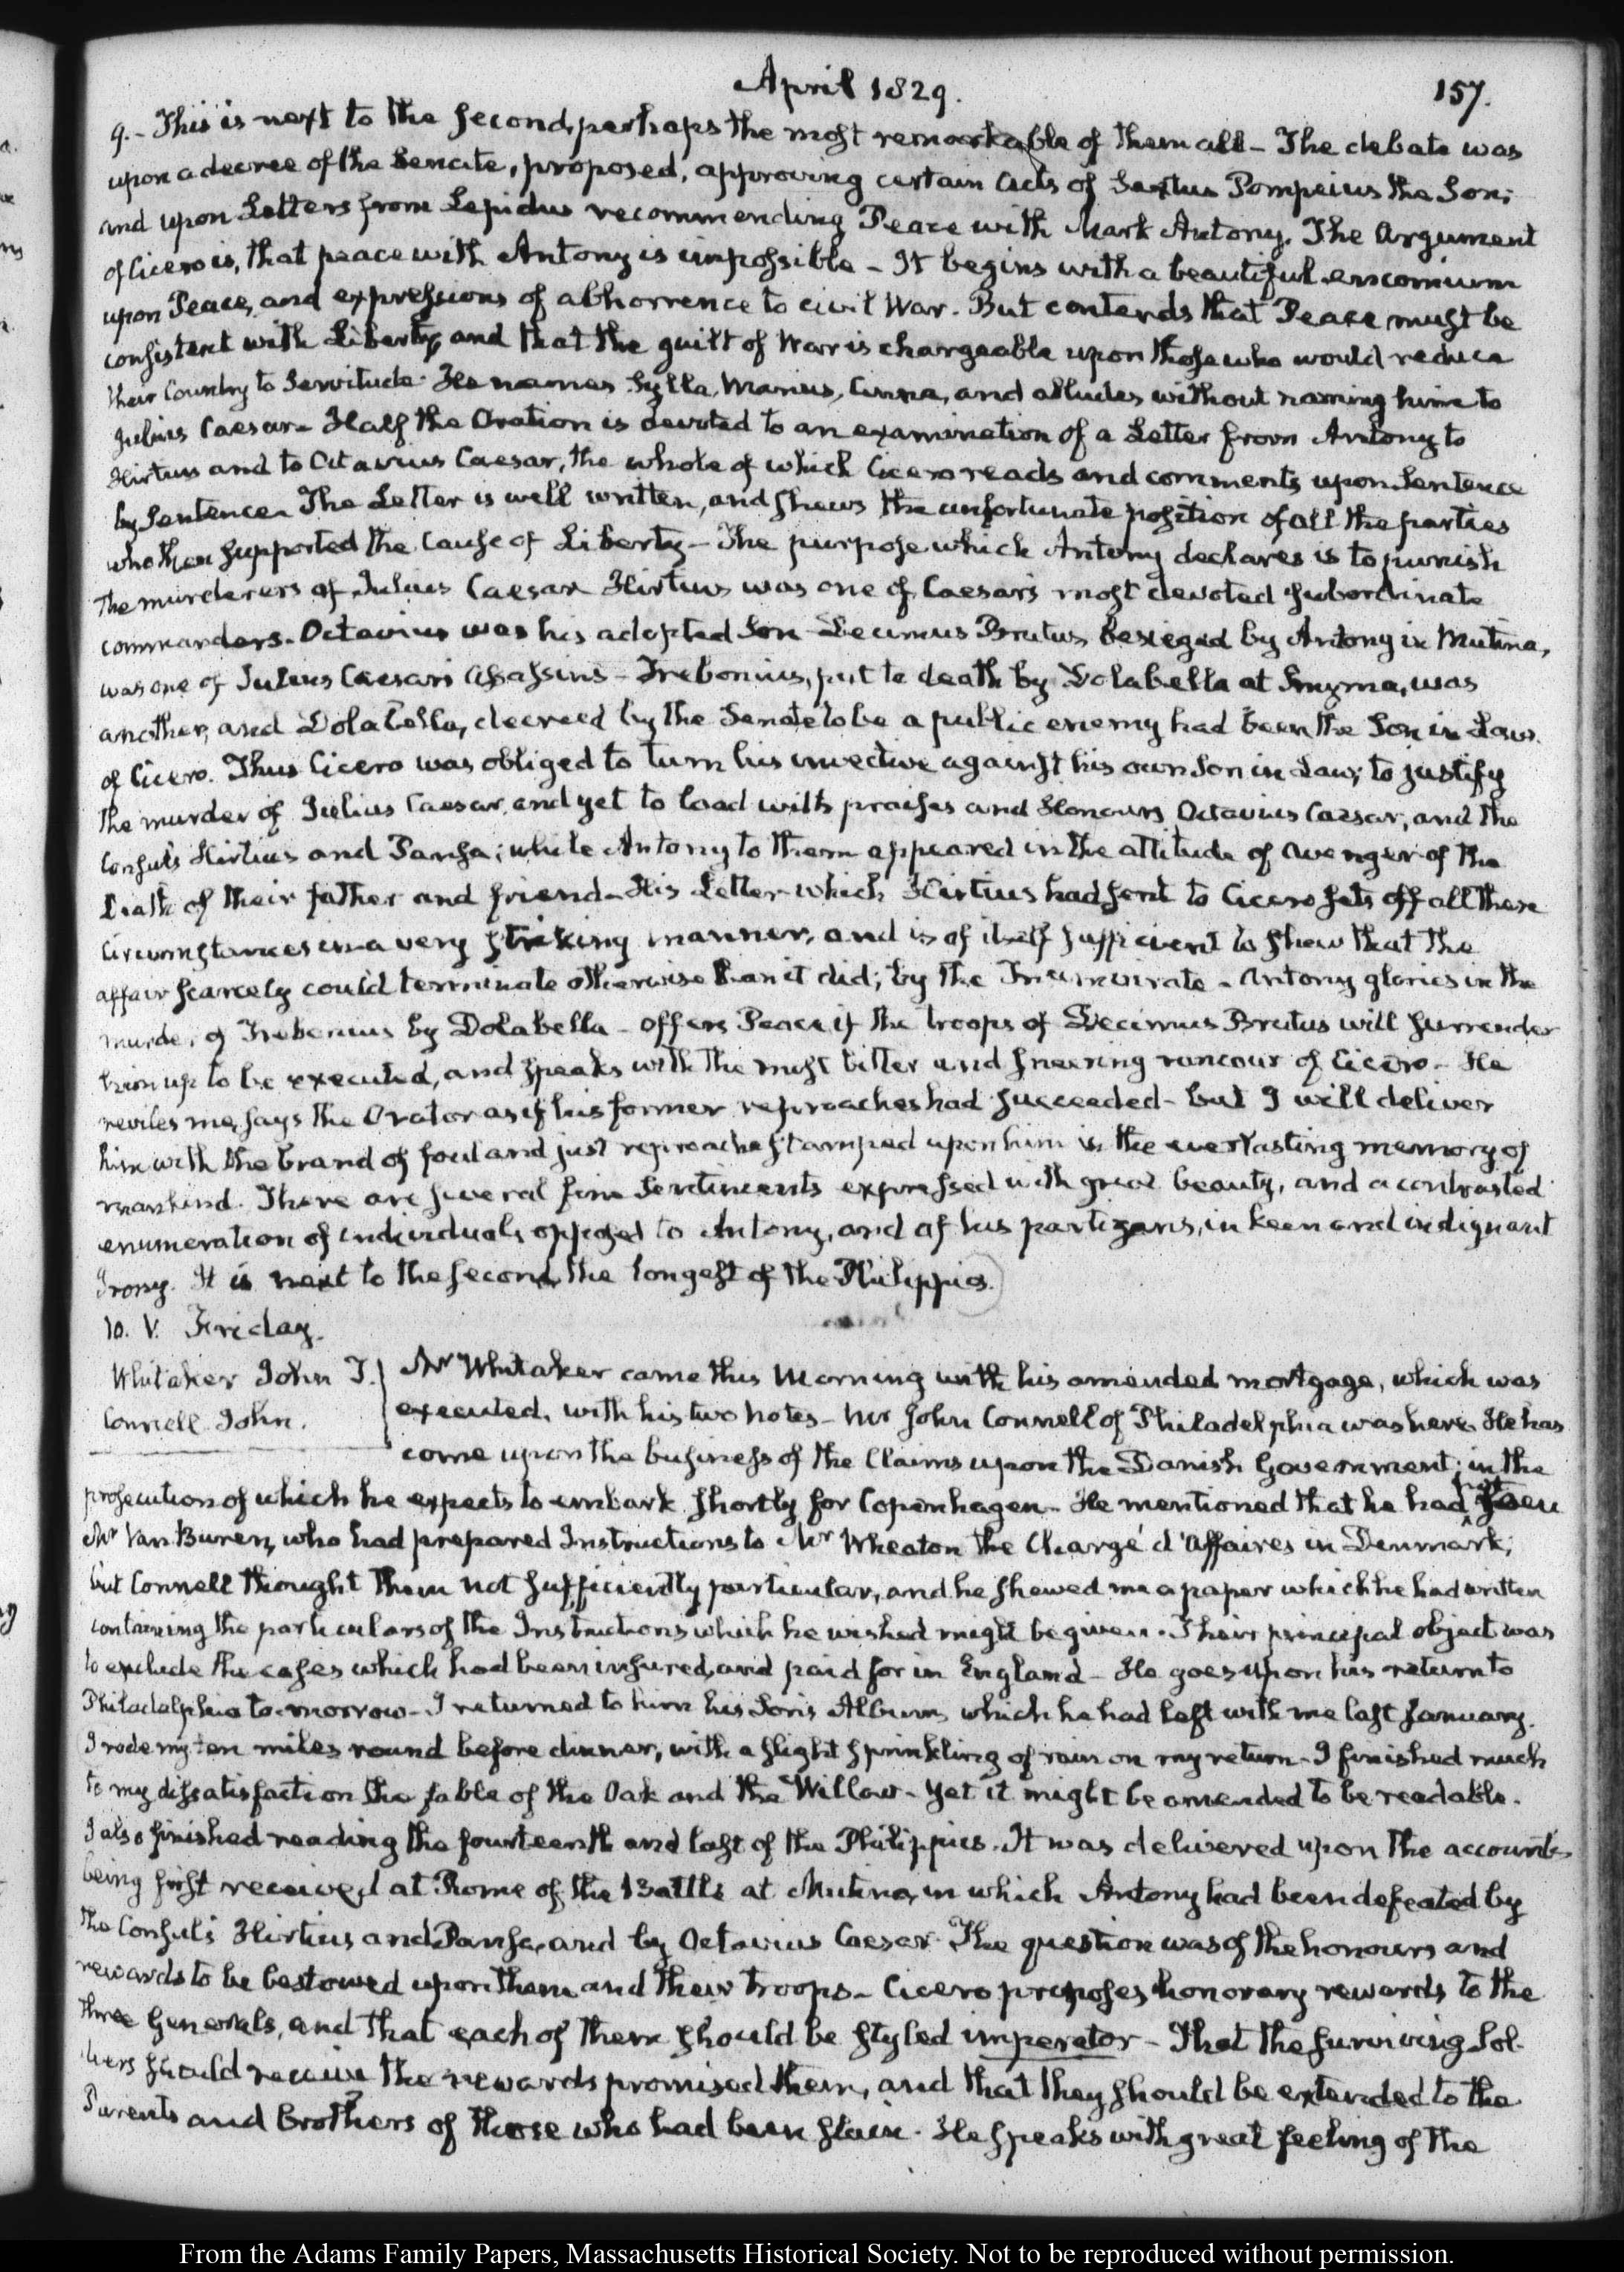 April 1829.
157.
9. - This is next to the second, perhaps the most remarkable of them all - The debate was
upon a decree of the Senate, proposed, approving certain Acts of Sextus Pompeius the Son;
and upon Letters from Lepidus recommending Peace with Mark Antony. The Argument
of Cicero is, that peace with Antony is impossible - It begins with a beautiful encomium
upon Peace, and expressions of abhorrence to civil War. But contends that Peace must be
consistent with Liberty, and that the guilt of War is chargeable upon those who would reduce
their Country to Servitude. He names Sylla, Marius, Cinna, and alludes without naming him to
Julius Caesar - Half the Oration is devoted to an examination of a Letter from Antony to
Hirtius and to Octavius Caesar, the whole of which Cicero reads and comments upon Sentence
by Sentence. The Letter is well written, and shews the unfortunate position of all the parties
who then supported the Cause of Liberty - The purpose which Antony declares is to punish
the murderers of Julius Caesar Hirtius was one of Caesar's most devoted subordinate
commanders. Octavius was his adopted Son Decimus Brutus besieged by Antony in Mutina,
was one of Julius Caesar's assassins - Trebonius, put to death by Dolabella at Smyrna, was
another, and Dolabella, decreed by the Senate to be a public enemy had been the Son in Law
of Cicero. Thus Cicero was obliged to turn his invective against his own Son in Law; to justify
the murder of Julius Caesar, and yet to load with praises and Honours Octavius Caesar, and the
Consuls Hirtius and Pansa; while Antony to them appeared in the attitude of avenger of the
Death of their father and friend - His Letter which Hirtius had sent to Cicero sets off all these
Circumstances in a very striking manner, and is of itself sufficient to shew that the
affair scarcely could terminate otherwise than it did; by the Triumvirate - Antony glories in the
murder of Trebonius by Dolabella - offers Peace if the troops of Decimus Brutus will surrender
him up to be executed, and speaks with the most bitter and sneering rancour of Cicero - He
reviles me, says the Orator as if his former reproaches had succeeded - but I will deliver
him with the brand of foul and just reproach stamped upon him in the everlasting memory of
mankind. There are several fine sentiments expressed with great beauty, and a contrasted
enumeration of individuals opposed to Antony, and of his partizans, in keen and indignant
Irony. It is next to the second, the longest of the Philippics.
10. V. Friday.
Whitaker John T.
Connell John.
Mr Whitaker came this Morning with his amended mortgage, which was
executed, with his two notes - Mr John Connell of Philadelphia was here. He has
come upon the business of the Claims upon the Danish Government; in the
prosecution of which he expects to embark shortly for Copenhagen - He mentioned that he had seen
Mr Van Buren, who had prepared Instructions to Mr Wheaton the Chargé d'Affaires in Denmark;
but Connell thought them not sufficiently particular, and he shewed me a paper which he had written
containing the particulars of the Instructions which he wished might be given. Their principal object was
to exclude the cases which had been insured, and paid for in England - He goes upon his return to
Philadelphia to-morrow - I returned to him his Son's Album, which he had left with me last January.
I rode my ten miles round before dinner, with a slight sprinkling of rain on my return - I finished much
to my dissatisfaction the fable of the Oak and the Willow - Yet it might be amended to be readable.
I also finished reading the fourteenth and last of the Philippics. It was delivered upon the accounts
being first received at Rome of the Battle at Mutina, in which Antony had been defeated by
the Consuls Hirtius and Pansa, and by Octavius Caesar. The question was of the honours and
rewards to be bestowed upon them and their troops - Cicero proposes honorary rewards to the
three Generals, and that each of them should be styled imperator - That the surviving Sol-
diers should receive the rewards promised them, and that they should be extended to the
Parents and Brothers of those who had been slain. He speaks with great feeling of the
From the Adams Family Papers, Massachusetts Historical Society. Not to be reproduced without permission.